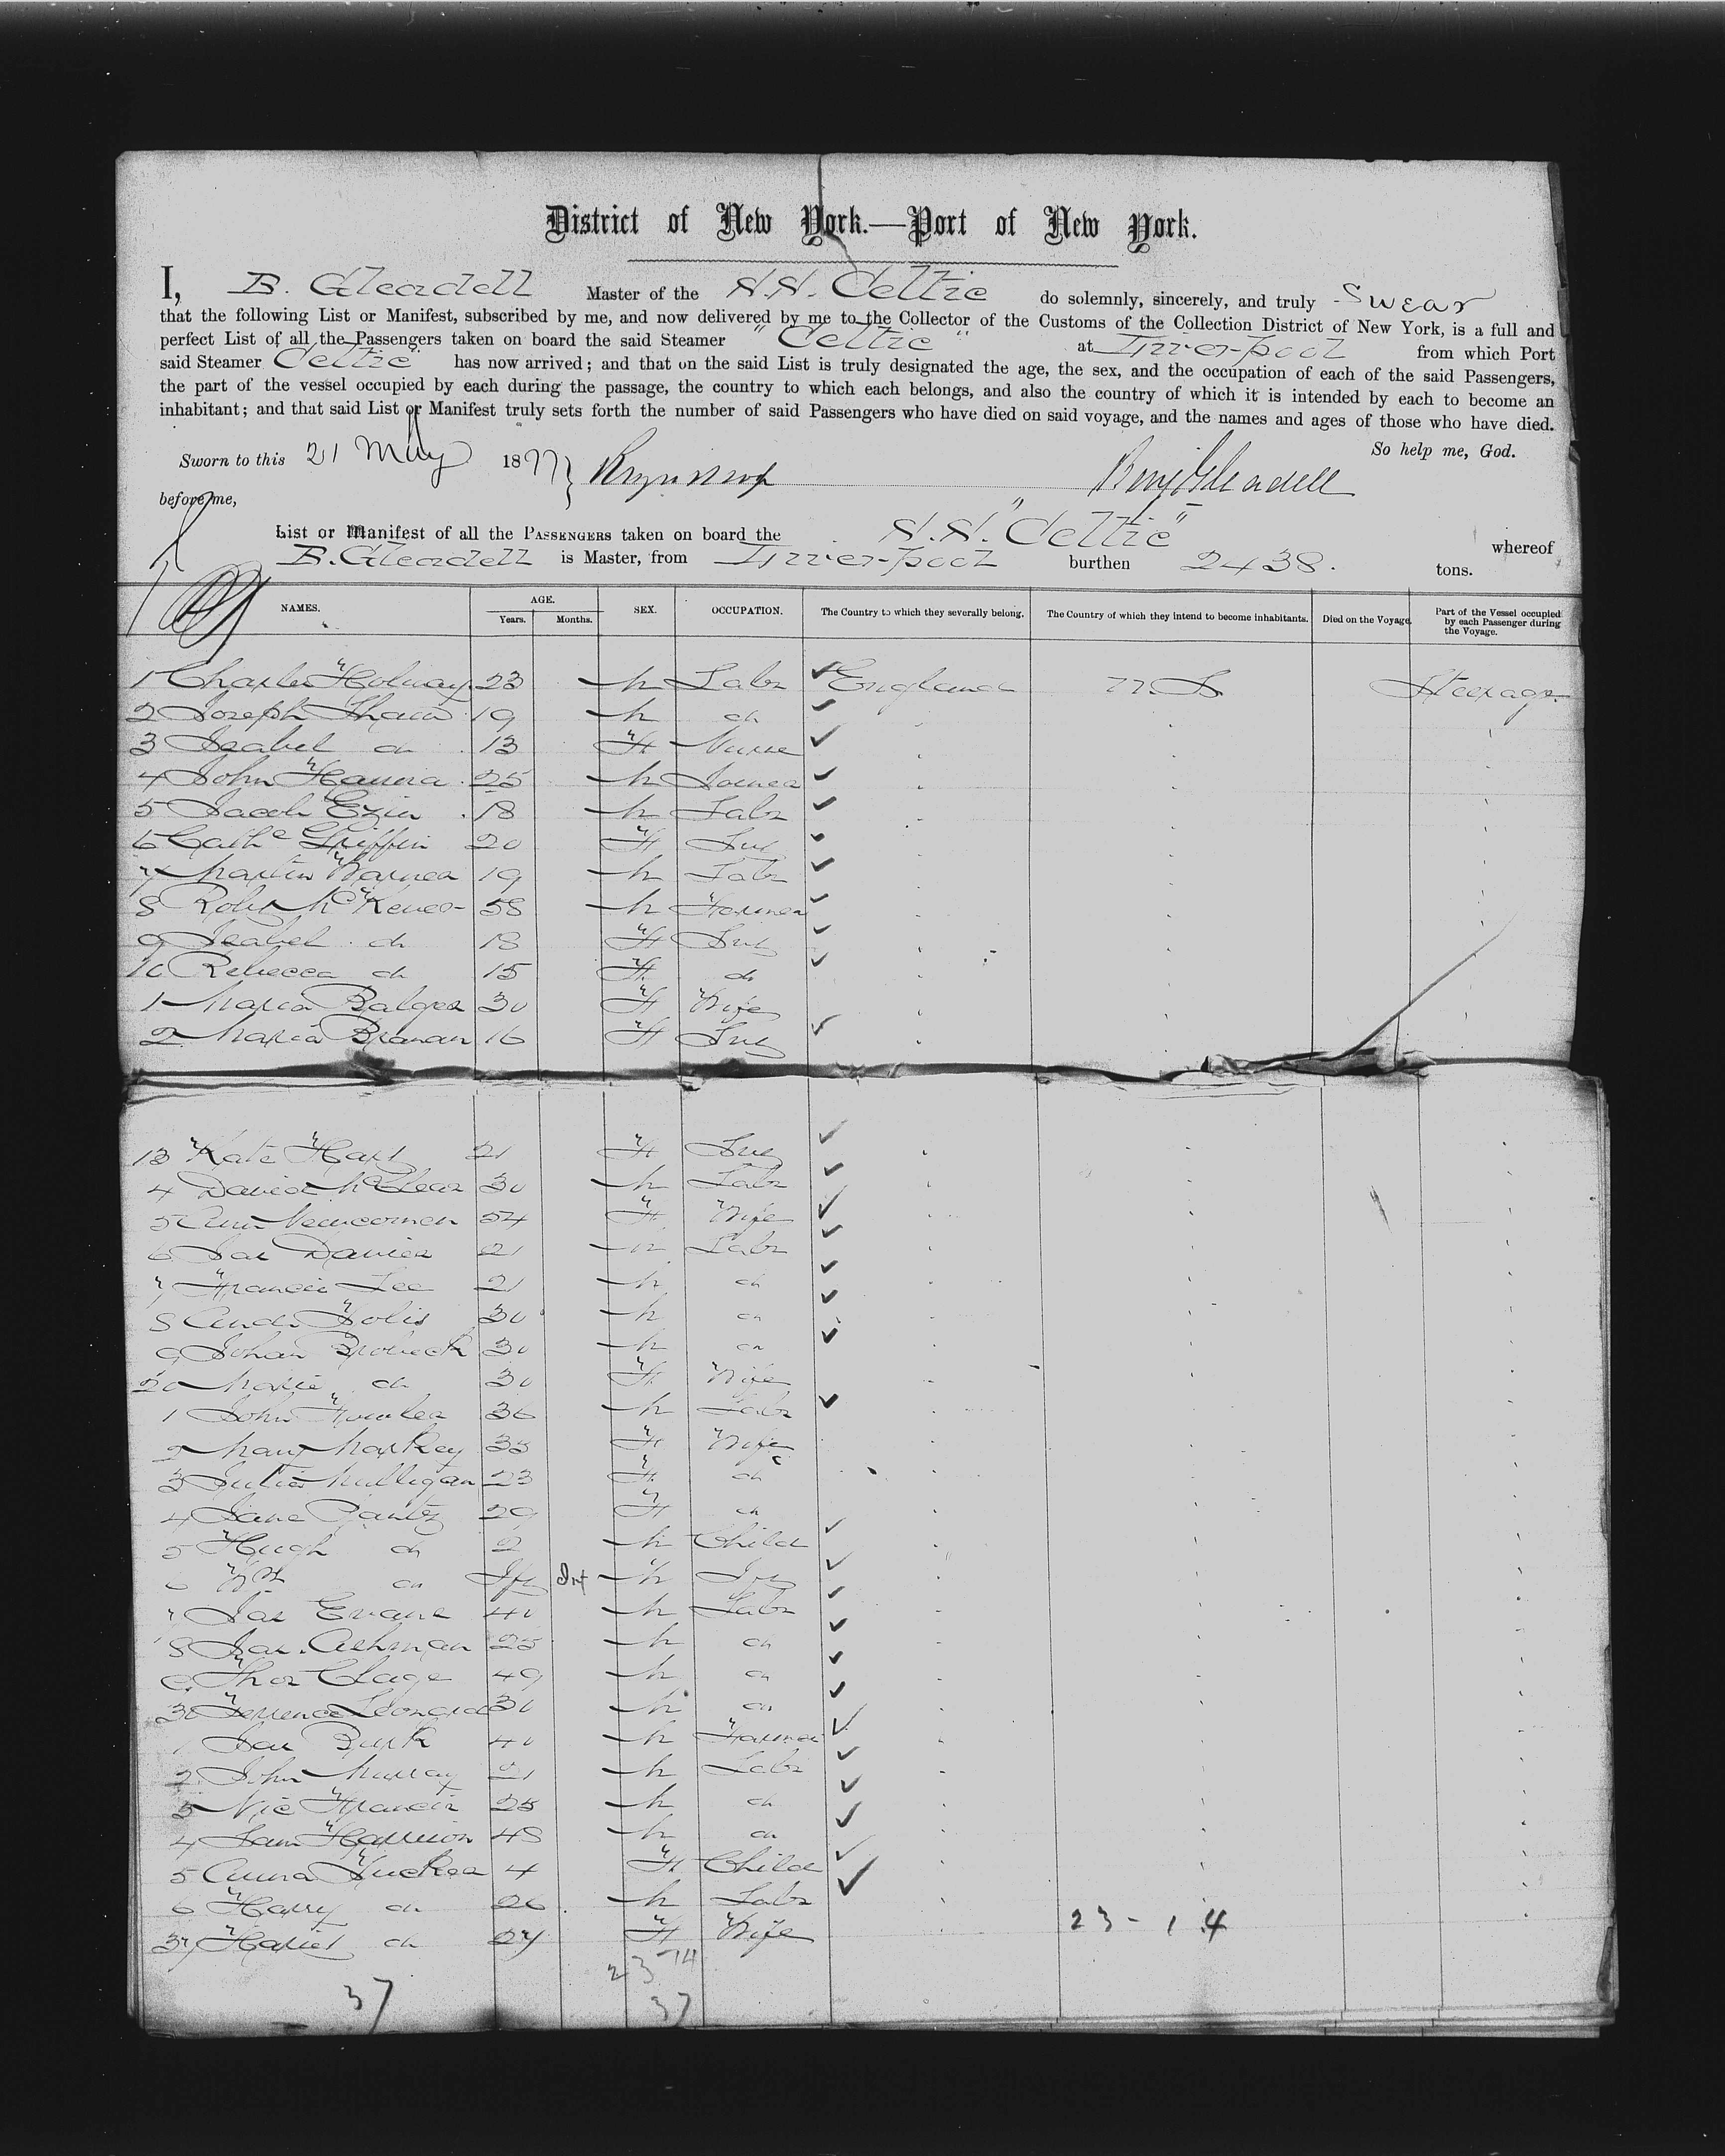 District of New York.—Port of New York.
I, B. Gleadell Master of the S.S. Celtic do solemnly, sincerely, and truly Swear
that the following List or Manifest, subscribed by me, and now delivered by me to the Collector of the Customs of the Collection District of New York, is a full and
perfect List of all the Passengers taken on board the said Steamer "Celtic" at Liverpool from which Port
said Steamer Celtic has now arrived; and that on the said List is truly designated the age, the sex, and the occupation of each of the said Passengers,
the part of the vessel occupied by each during the passage, the country to which each belongs, and also the country of which it is intended by each to become an
inhabitant; and that said List or Manifest truly sets forth the number of said Passengers who have died on said voyage, and the names and ages of those who have died.
So help me, God.
Sworn to this 21 May 1877 Benj Gleadell
before me,
List or Manifest of all the PASSENGERS taken on board the S.S. "Celtic" whereof
B. Gleadell is Master, from Liverpool burthen 2438. tons.
NAMES. AGE. Years. Months. SEX. OCCUPATION. The Country to which they severally belong. The Country of which they intend to become inhabitants. Died on the Voyage. Part of the Vessel occupied by each Passenger during the Voyage.
1 Charles Holway 23 M Labr England U.S Steerage
2 Joseph Shaw 19 M do
3 Isabel do 13 F Nurse
4 John Hanna 25 M Joiner
5 Jacob 18 M Labr
6 Cathe Griffin 20 F Srv
7 Martin Warner 19 M Labr
8 Robt 58 M Farmer
9 Isabel do 18 F Srv
10 Rebecca do 15 F do
1 Maria Balger 30 F Wife
2 Maria Branan 16 F Srv
13 Kate Hart 21 F Srv
4 David McLear 30 M Labr
5 Ann Newcomen 54 F Wife
6 Jas Davies 21 M Labr
7 Francis Lee 21 M do
8 Andr 30 M do
9 Johan Brobeck 30 M do
20 Marie do 30 F Wife
1 John Fowler 36 M Labr
2 Mary Markey 35 F Wife
3 Julia Mulligan 23 F do
4 Jane 29 F do
5 Hugh do 2 M Child
6 Wm do Inf M Inf
7 Jas Evans 40 M Labr
8 Jas. Ashman 25 M do
9 Thos Clage 49 M do
30 Terrence Leonard 30 M do
1 Jas Burk 40 M Farmer
2 John Murray 21 M Labr
3 Nic Francis 25 M do
4 Sam Harrison 48 M do
5 Anna Tucker 4 F Child
6 Harry do 26 M Labr
37 Hariet do 27 F Wife
23 - 14
23 14
37 37